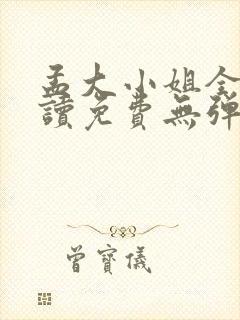 孟大小姐全
讀免費無彈
曾寶儀